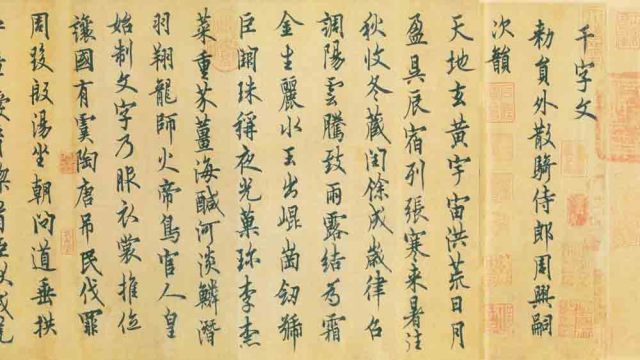 千字文
勅員外散騎侍郎周興嗣
次韻
天地玄黃宇宙洪荒日月
盈昃辰宿列張寒来暑往
秋收冬藏閏餘成歲律召
調陽雲騰致雨露結為霜
金生麗水玉出崐崗劒號
巨闕珠稱夜光菓珎李柰
菜重芥薑海醎河淡鱗潛
羽翔龍師火帝鳥官人皇
始制文字乃服衣裳推位
讓國有虞陶唐吊民伐罪
周發殷湯坐朝問道垂拱